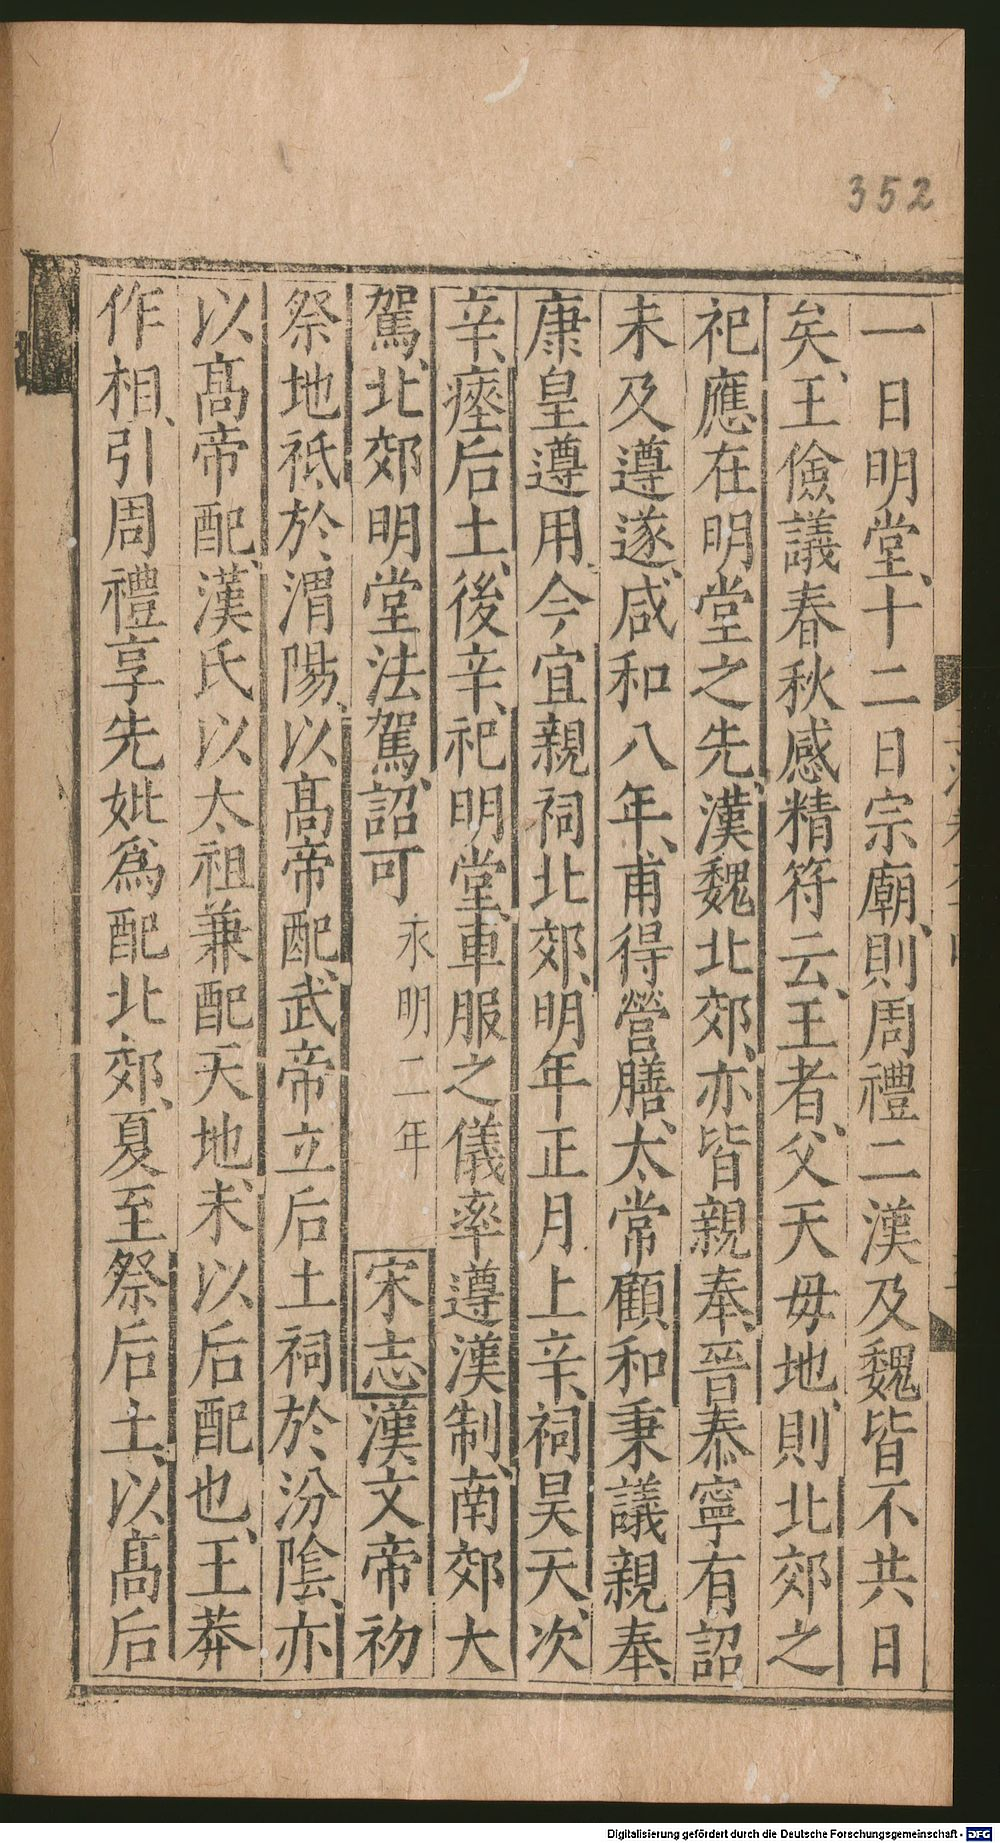 352
一日明堂、十二日宗廟、則周禮二漢及魏皆不共日
矣、王儉議春秋感精符云、王者、父天毋地、則北郊之
祀應在明堂之先、漢魏北郊、亦皆親奉、晉泰寧有詔
未及遵遂、咸和八年、甫得營膳、太常顧和秉議親奉、
康皇遵用、今宜親祠北郊、明年正月上辛、祠昊天、次
辛、瘞后土、後辛、祀明堂、車服之儀率遵漢制、南郊大
駕、北郊明堂法駕、詔可 永明二年 宋志 漢文帝初
祭地祗於渭陽、以髙帝配、武帝立后土祠於汾陰、亦
以髙帝配、漢氏以太祖兼配天地、未以后配也、王莽
作相、引周禮享先妣爲配北郊、夏至祭后土、以髙后
Digitalisierung gefördert durch die Deutsche Forschungsgemeinschaft - DFG